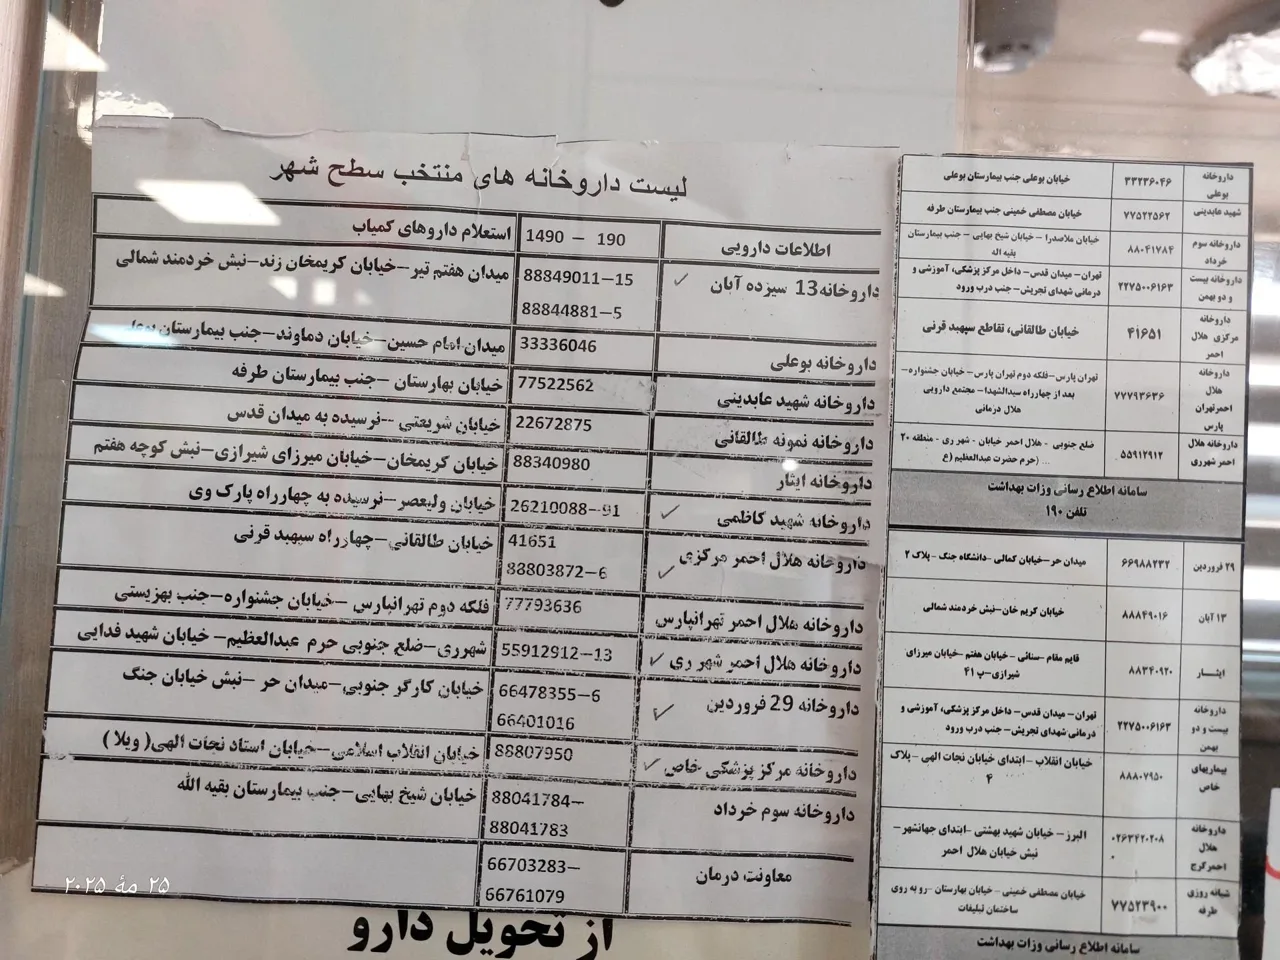 لیست داروخانه های منتخب سطح شهر
اطلاعات دارویی 190 – 1490 استعلام داروهای کمیاب
داروخانه13 سیزده آبان ✓ 88849011–15 میدان هفتم تیر–خیابان کریمخان زند–نبش خردمند شمالی
88844881–5
داروخانه بوعلی 33336046 میدان امام حسین–خیابان دماوند–جنب بیمارستان بوعلی
داروخانه شهید عابدینی 77522562 خیابان بهارستان –جنب بیمارستان طرفه
داروخانه نمونه طالقانی 22672875 خیابان شریعتی –نرسیده به میدان قدس
داروخانه ایثار 88340980 خیابان کریمخان–خیابان میرزای شیرازی–نبش کوچه هفتم
داروخانه شهید کاظمی ✓ 26210088–91 خیابان ولیعصر–نرسیده به چهارراه پارک وی
داروخانه هلال احمر مرکزی ✓ 41651 خیابان طالقانی–چهارراه سپهبد قرنی
88803872–6
داروخانه هلال احمر تهرانپارس 77793636 فلکه دوم تهرانپارس –خیابان جشنواره–جنب بهزیستی
داروخانه هلال احمر شهر ری ✓ 55912912–13 شهرری–ضلع جنوبی حرم عبدالعظیم– خیابان شهید فدایی
داروخانه 29 فروردین ✓ 66478355–6 خیابان کارگر جنوبی–میدان حر –نبش خیابان جنگ
66401016
داروخانه مرکز پزشکی خاص ✓ 88807950 خیابان انقلاب اسلامی–خیابان استاد نجات الهی( ویلا )
داروخانه سوم خرداد 88041784– خیابان شیخ بهایی–جنب بیمارستان بقیه الله
88041783
معاونت درمان 66703283–
66761079
از تحویل دارو
داروخانه بوعلی ۳۳۲۳۶۰۴۶ خیابان بوعلی جنب بیمارستان بوعلی
شهید عابدینی ۷۷۵۲۲۵۶۲ خیابان مصطفی خمینی جنب بیمارستان طرفه
داروخانه سوم خرداد ۸۸۰۴۱۷۸۴ خیابان ملاصدرا – خیابان شیخ بهایی – جنب بیمارستان
بقیه اله
داروخانه بیست و دو بهمن ۲۲۷۵۰۰۶۱۶۳ تهران– میدان قدس– داخل مرکز پزشکی، آموزشی و
درمانی شهدای تجریش– جنب درب ورود
داروخانه مرکزی هلال احمر ۴۱۶۵۱ خیابان طالقانی، تقاطع سپهبد قرنی
داروخانه هلال احمرتهران پارس ۷۷۷۹۳۶۳۶ تهران پارس–فلکه دوم تهران پارس – خیابان جشنواره–
بعد از چهارراه سیدالشهدا– مجتمع دارویی
هلال درمانی
داروخانه هلال احمر شهرری ۵۵۹۱۲۹۱۲ ضلع جنوبی - هلال احمر خیابان - شهر ری - منطقه ۲۰
... (حرم حضرت عبدالعظیم (ع
سامانه اطلاع رسانی وزات بهداشت
تلفن ۱۹۰
۲۹ فروردین ۶۶۹۸۸۲۳۲ میدان حر–خیابان کمالی –دانشگاه جنگ –پلاک ۲
۱۳ آبان ۸۸۸۴۹۰۱۶ خیابان کریم خان–نبش خردمند شمالی
ایثـــار ۸۸۳۴۰۹۲۰ قایم مقام –سنائی – خیابان هفتم –خیابان میرزای
شیرازی–پ ۴۱
داروخانه بیست و دو بهمن ۲۲۷۵۰۰۶۱۶۳ تهران – میدان قدس– داخل مرکز پزشکی، آموزشی و
درمانی شهدای تجریش– جنب درب ورود
بیماریهای خاص ۸۸۸۰۷۹۵۰ خیابان انقلاب –ابتدای خیابان نجات الهی – پلاک
۴
داروخانه هلال احمرکرج ۰۲۶۳۴۲۰۲۰۸۰ البرز– خیابان شهید بهشتی –ابتدای جهانشهر–
نبش خیابان هلال احمر
شبانه روزی طرفه ۷۷۵۲۳۹۰۰ خیابان مصطفی خمینی – خیابان بهارستان –رو به روی
ساختمان تبلیغات
سامانه اطلاع رسانی وزات بهداشت
۲۵ مهٔ ۲۰۲۵